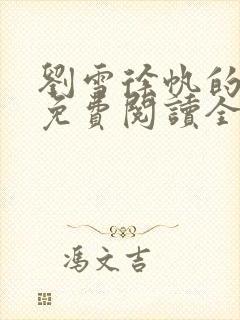 劉雪徐帆的
免費閱讀全
馮文吉